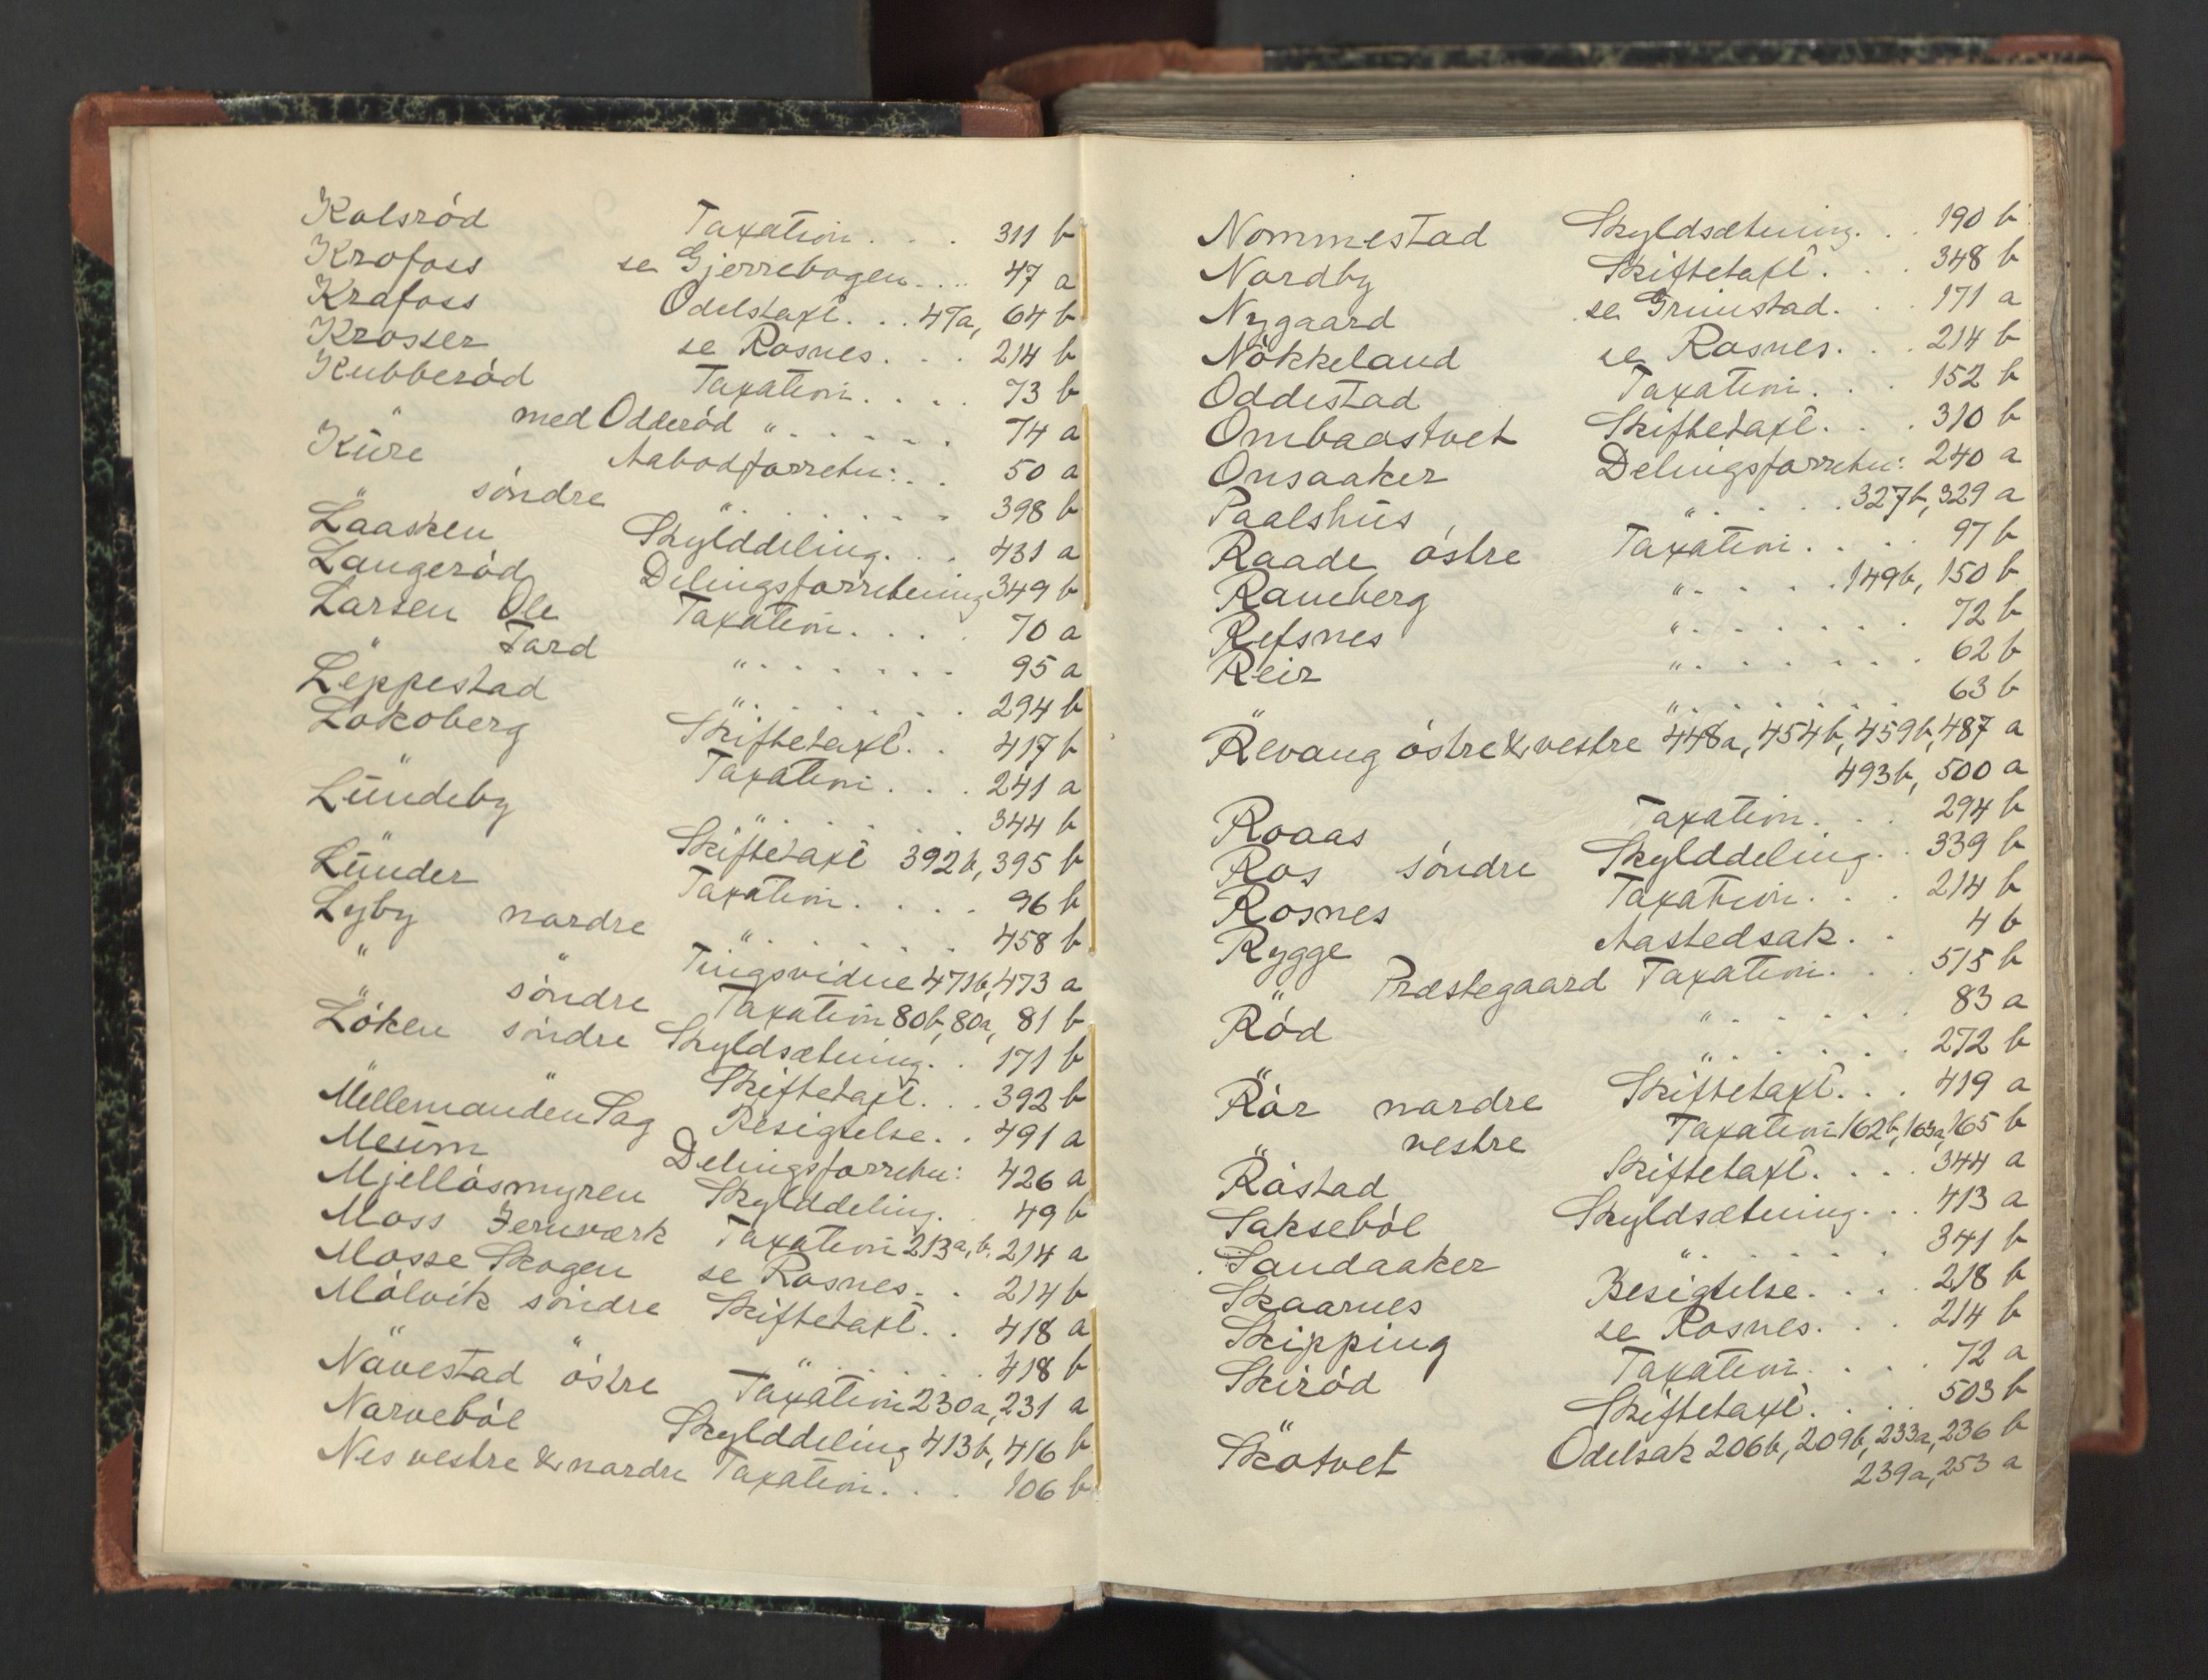 Kolsröd Taxation. . . . 311 b
Krofoss se Gjerrebogen. . . . 47 a
Krafoss Odelstaxt. . . 47a, 64 b
Krosser se Rosnes. . . . 214 b
Kubberöd Taxation. . . . 73 b
" med Odderöd " . . . . . . 74 a
Kure Aabodforretn: . . 50 a
" söndre " . . . . . . . 398 b
Laasken Skylddeling. . . 431 a
Langeröd Delingsforretning 349 b
Larsen Ole Taxation. . . . 70 a
" Tard " . . . . . . . 95 a
Leppestad " . . . . . . . 294 b
Lokoberg Skiftetaxt. . 417 b
" Taxation. . . . 241 a
Lundeby " . . . . . . . 344 b
" Skiftetaxt 392b, 395 b
Lunder Taxation. . . . 96 b
Lyby nordre " . . . . . . . 458 b
" " Tingsvidne 471b, 473 a
" söndre Taxation 80b, 80a, 81 b
Löken söndre Skyldsætning. . 171 b
" " Skiftetaxt. . . 392 b
Mellemanden Sag Besigtelse. . 491 a
Meum Delingsforretn: 426 a
Mjellösmyren Skylddeling. . 49 b
Moss Jernværk Taxation 213a, b. 214 a
Mosse Skogen se Rosnes. . 214 b
Mölvik söndre Skiftetaxt. . 418 a
" " " . . . . . 418 b
Navestad östre Taxation 230a, 231 a
Narveböl Skylddeling 413b, 416 b
Nes vestre & nordre Taxation. . . 106 b
Nommestad Skyldsætning. . . 190 b
Nordby Skiftetaxt. . . . 348 b
Nygaard se Grimstad. . . 171 a
Nökkeland se Rosnes. . . 214 b
Oddestad Taxation. . . . 152 b
Ombaastvet Skiftetaxt. . . 310 b
Onsaaker Delingsforretn: 240 a
Paalshus " . . . . . 327b, 329 a
Raade östre Taxation. . . . 97 b
Ramberg " . . . . . 149b, 150 b
Refsnes " . . . . . . . 72 b
Reir " . . . . . . . 62 b
" " . . . . . . . 63 b
Revaug östre & vestre 448a, 454b, 459b, 487 a
493b, 500 a
Roaas Taxation. . . . 294 b
Ros söndre Skylddeling. . 339 b
Rosnes Taxation. . . . 214 b
Rygge Aastedsak. . 4 b
" Præstegaard Taxation. . . 515 b
Röd " . . . . . . . 83 a
" " . . . . . . . 272 b
Rör nordre Skiftetaxt. . . 419 a
" vestre Taxation 162b, 163a, 165 b
Röstad Skiftetaxt. . . . 344 a
Sakseböl Skyldsætning. . . 413 a
Sandaaker " . . . . . . . 341 b
Skaarnes Besigtelse. . . . 218 b
Skipping se Rosnes. . . 214 b
Skiröd Taxation. . . . 72 a
" Skiftetaxt. . . . 503 b
Skotvet Odelsak 206b, 209b, 233a, 236 b
239a, 253 a